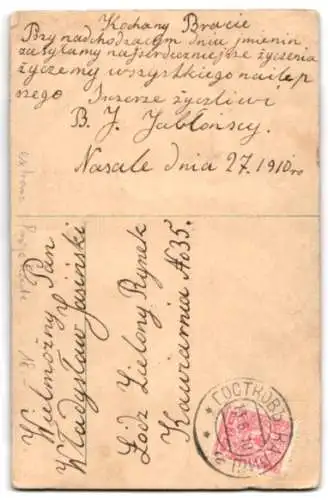 Kochany Bracie
Przy nadchodzącem dniu jmienin
zasyłamy najserdeczniejsze życzenia
życzemy wszystkiego nailep
szego Szczerze życzliwi
B. J. Jabłońscy.
Nasale dnia 27. 1910 ro
Wielmożny Pan
Władysław Jasiński
Łódź Zielony Rynek
Kawiarnia No 35.